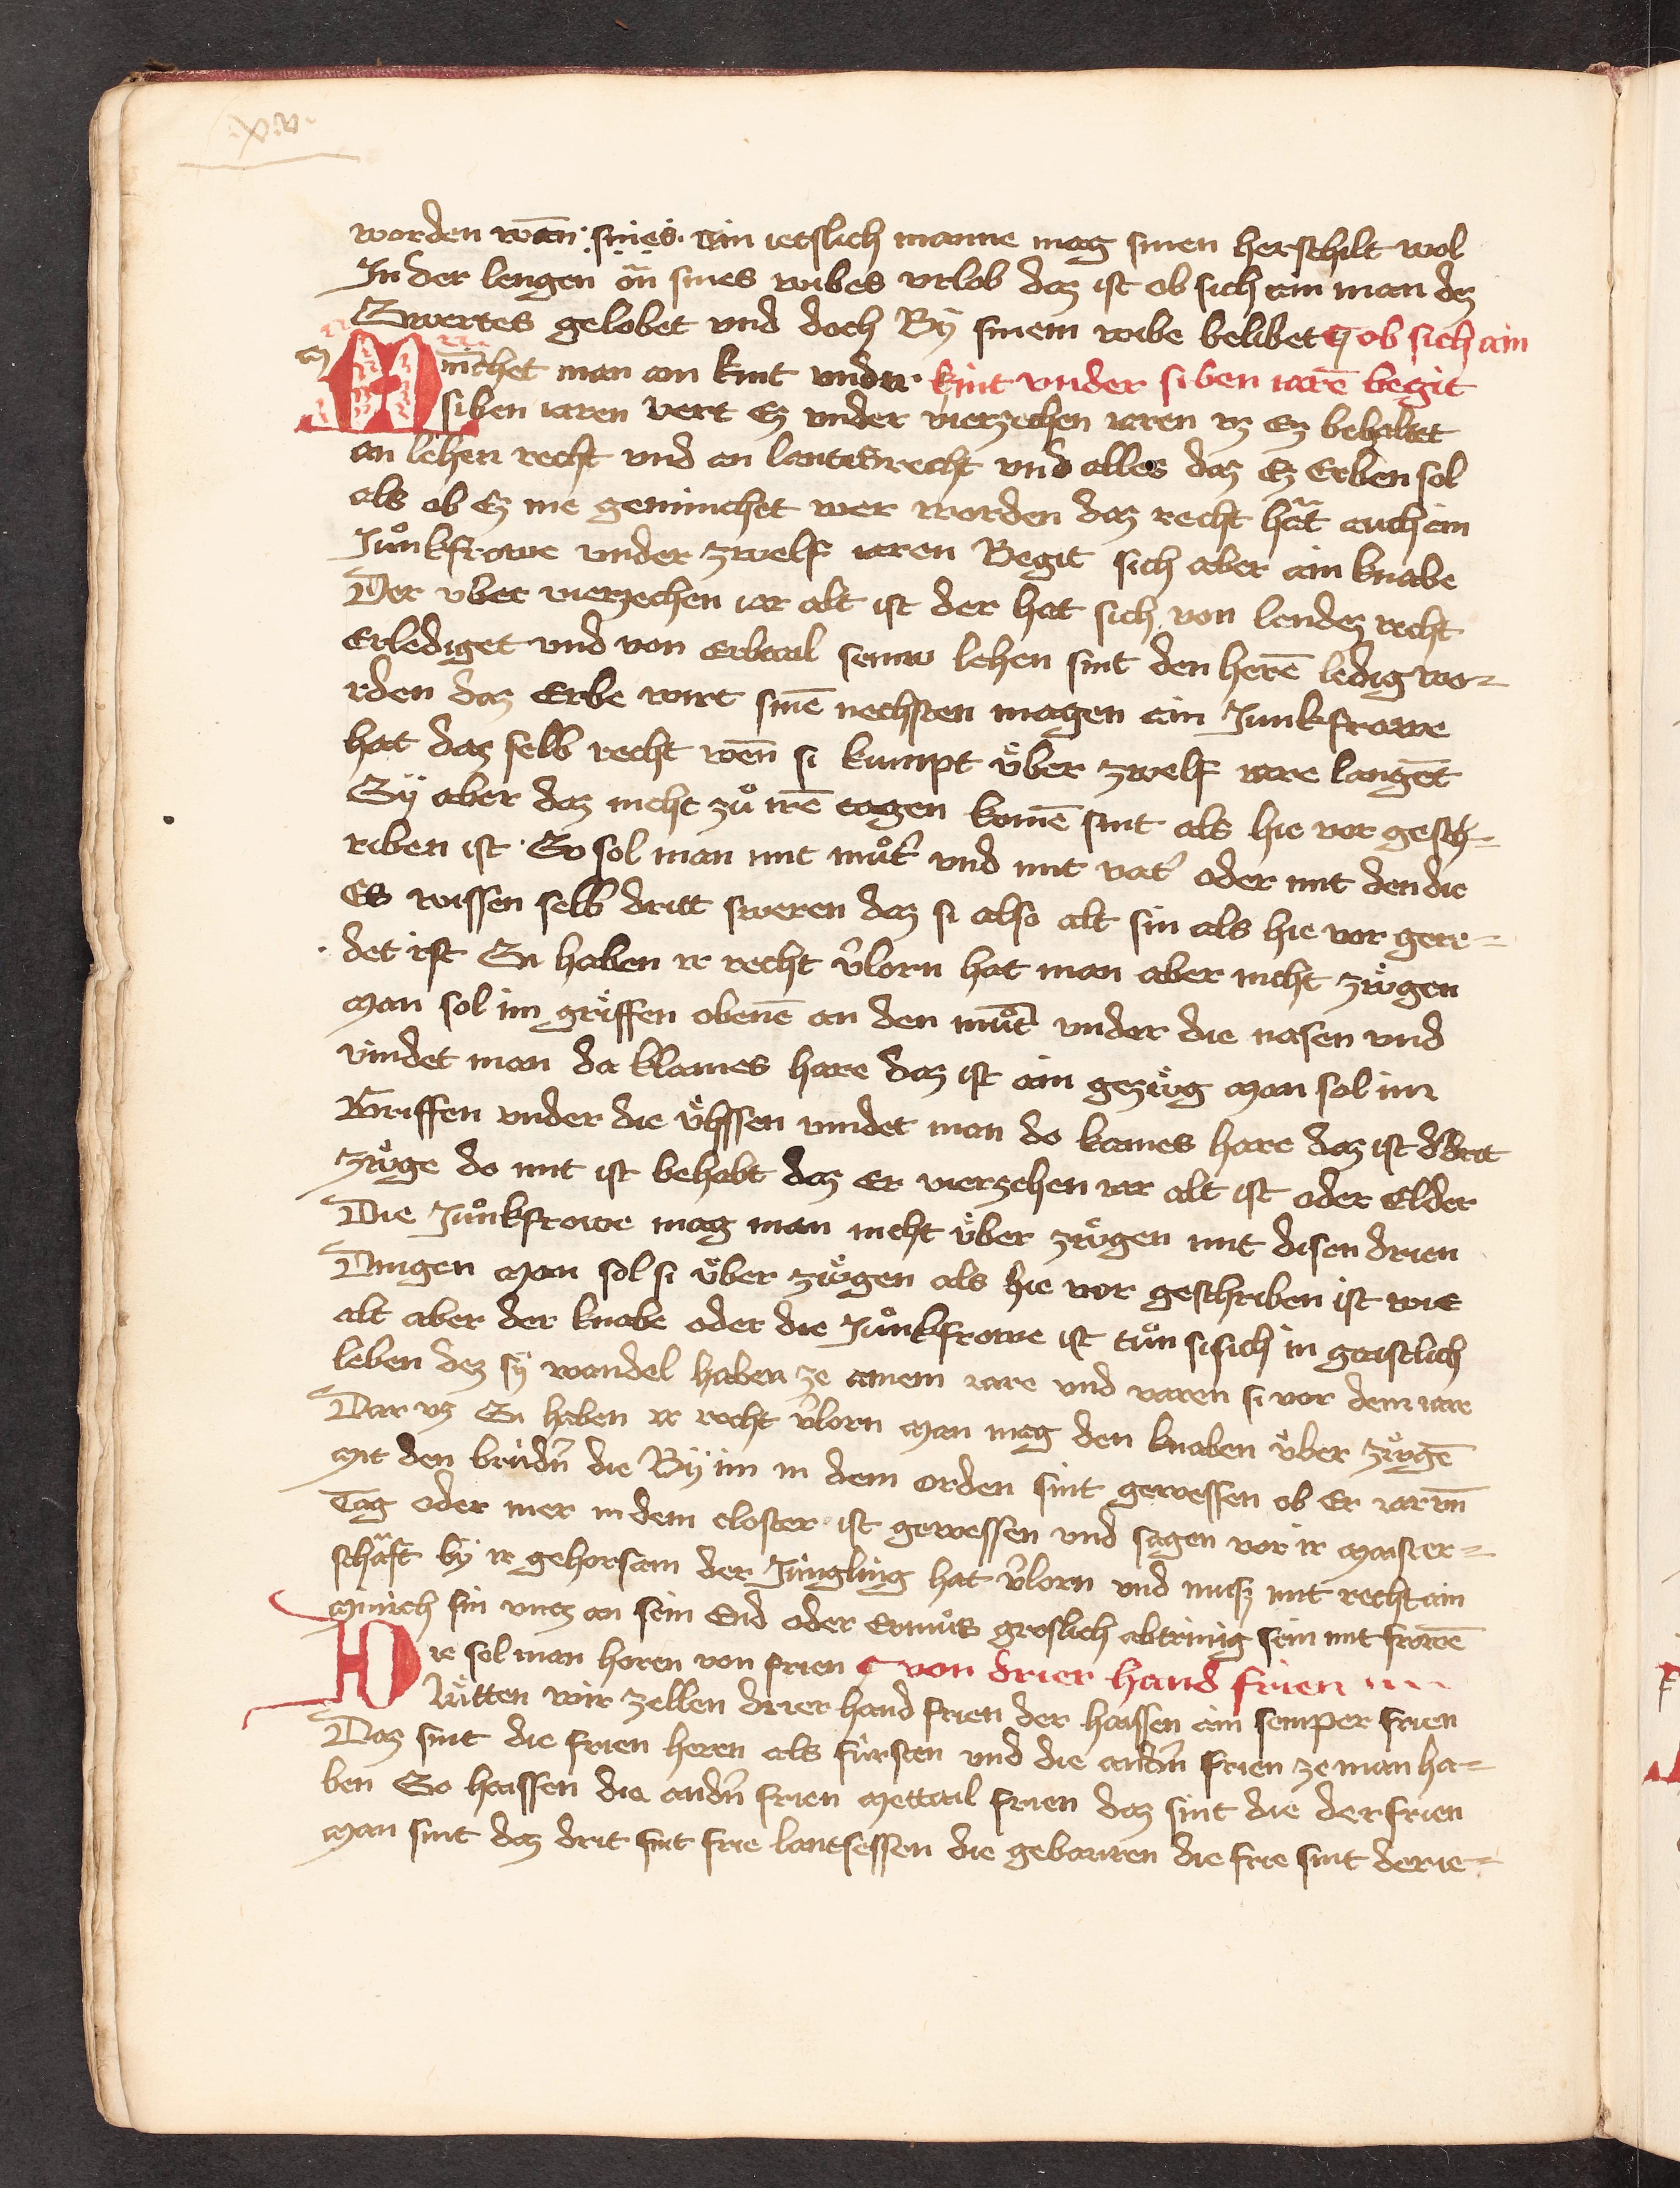 xv
worden wān sines ain ietslich manne mag sinen herschilt wol
In der lengen ăn sines wibes vrlob daz ist ob sich ain man dez
Swertes gelobet vnd doch By sinem wibe belibet ¶ ob sich ain
Minchet man ain kint vnder kint vnder siben iarē begit
siben iaren vert Ez vnder vierzechen iaren vz Ez behaltet
an lehen recht vnd an lantesrecht vnd alles daz Ez Erben sol
als ob Ez nie gemunchet wer worden daz recht hăt auch ain
Juͦnkfrowe vnder zwelf iaren Begit sich aber ain knabe
Der vber vierzechen iar alt ist der hat sich von lendez recht
Erlediget vnd von Erbtail seinw lehen sint den herē ledig wo=
rden daz Erbe wirt sinē nechsten magen ain Junkfrowe
hat daz selb recht wēn si kumpt uͤber zwelf iare langēt
Sÿ aber daz nicht zuͦ irē tagen komē sint als hie vor gesch=
riben ist So sol man mit muͦt͛ vnd mit vat͛ oder mit den die
Es wissen selb dritt sweren daz si also alt sin als hie vor gere=
det ist Si haben ir recht v͛lorn hat man aber nicht zuͤgen
Man sol im griffen obenē an den mut͛ vnder die nasen vnd
vindet man da klaines hare daz ist ain gezuͤg Man sol im
Griffen vnder die uͤhssen vindet man do kaines hare daz ist d drit
zuͤge do mit ist behabt daz Er vierzehen iar alt ist oder Elder
Die Juͦnkfrowe mag man nicht uͤber zuͤgen mit disen drien
Dingen Man sol si uͤber zuͤgen als hie vor geschriben ist wie
alt aber der knabe oder die Juͦnkfrowe ist tuͦn si sich in gaistlich
leben dez sÿ wandel haben ze ainem iare vnd varen si vor dem iare
Dar vz Si haben ir recht v͛lorn Man mag den knaben uͤber zuͤgē
Mit den bruͤdn͛ die Bÿ im in dem orden sint gewessen ob Er iar vn̄
Tag oder mer in dem closter ist gewessen vnd sagen vor ir Maister=
schăft bÿ ir gehorsam der Jungling hat v͛lorn vnd muͤsz mit recht ain
Munch sin vntz an sein End oder Er muͤs groslich abtrinig sein mit frowē
Hie sol man horen von frien ¶ von drier hand frien
Luͤtten wir zellen drier hand frien der haissen ain semper frien
Daz sint die frien heren als fuͤrsten vnd die andn͛ frien ze man ha=
ben So haissen die andn͛ frien Mettail frien daz sint die der frien
Man sint daz drit sint frie lantsessen die gebauren die frie sint der ie=